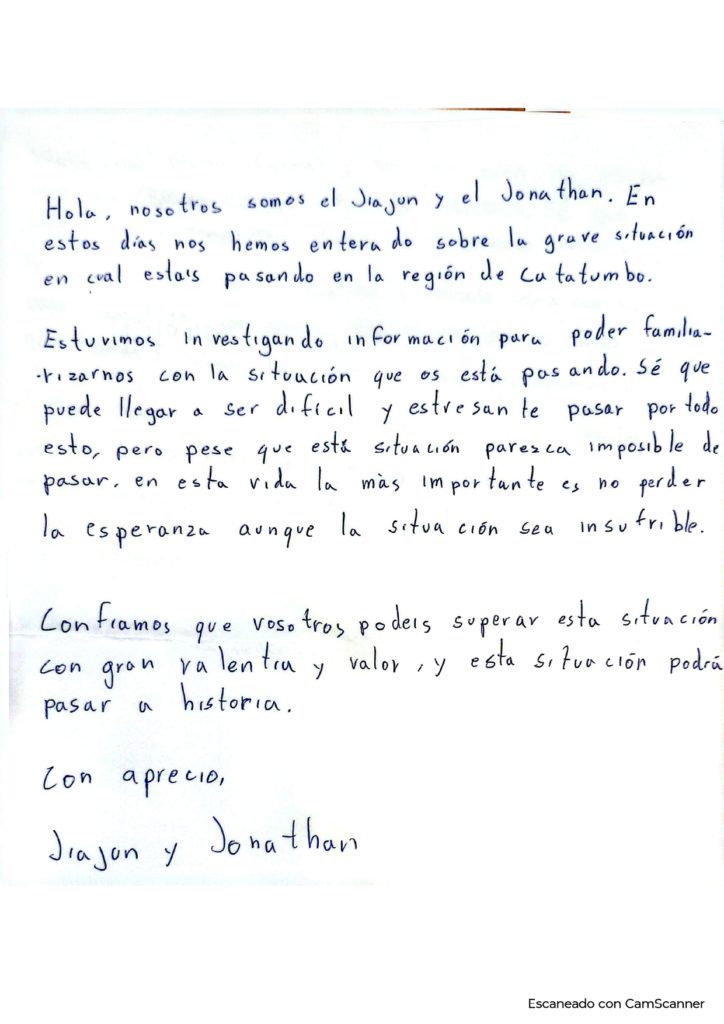 Hola, nosotros somos el Jiajun y el Jonathan. En
estos días nos hemos enterado sobre la grave situación
en cual estais pasando en la región de Catatumbo.
Estuvimos investigando información para poder familia-
-rizarnos con la situación que os está pasando. Sé que
puede llegar a ser difícil y estresante pasar por todo
esto, pero pese que está situación parezca imposible de
pasar. en esta vida la màs importante es no perder
la esperanza aunque la situación sea insufrible.
Confiamos que vosotros podeis superar esta situación
con gran valentia y valor, y esta situación podrá
pasar a historia.
Con aprecio,
Jiajun y Jonathan
Escaneado con CamScanner